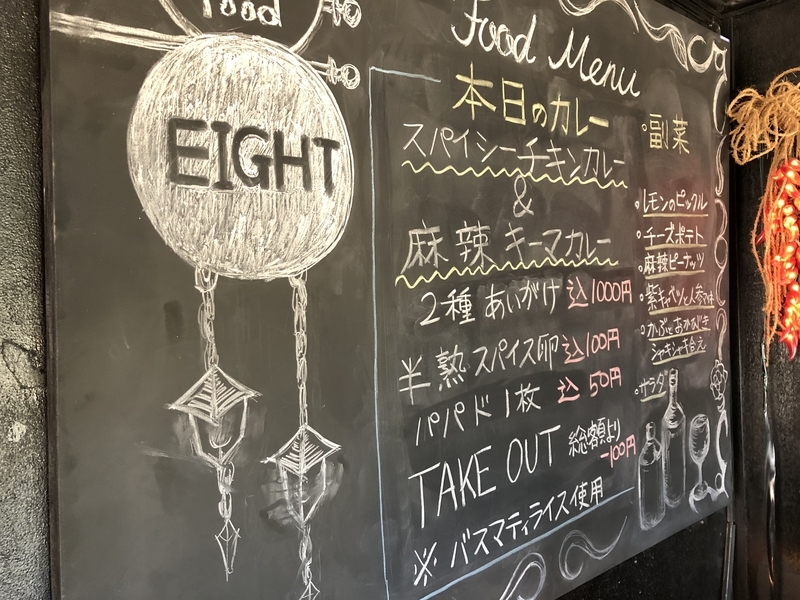 food
EIGHT
Food Menu
本日のカレー
スパイシーチキンカレー
&
麻辣 キーマカレー
2種 あいがけ 込1000円
半熟スパイス卵 込100円
パパド1枚 込 50円
TAKE OUT 総額より
-100円
※ バスマティライス使用
・副菜
・レモンのピックル
・チーズポテト
・麻辣ピーナッツ
・紫キャベツと人参
・かぶとおかひじき
シャキシャキ合え
・サラダ